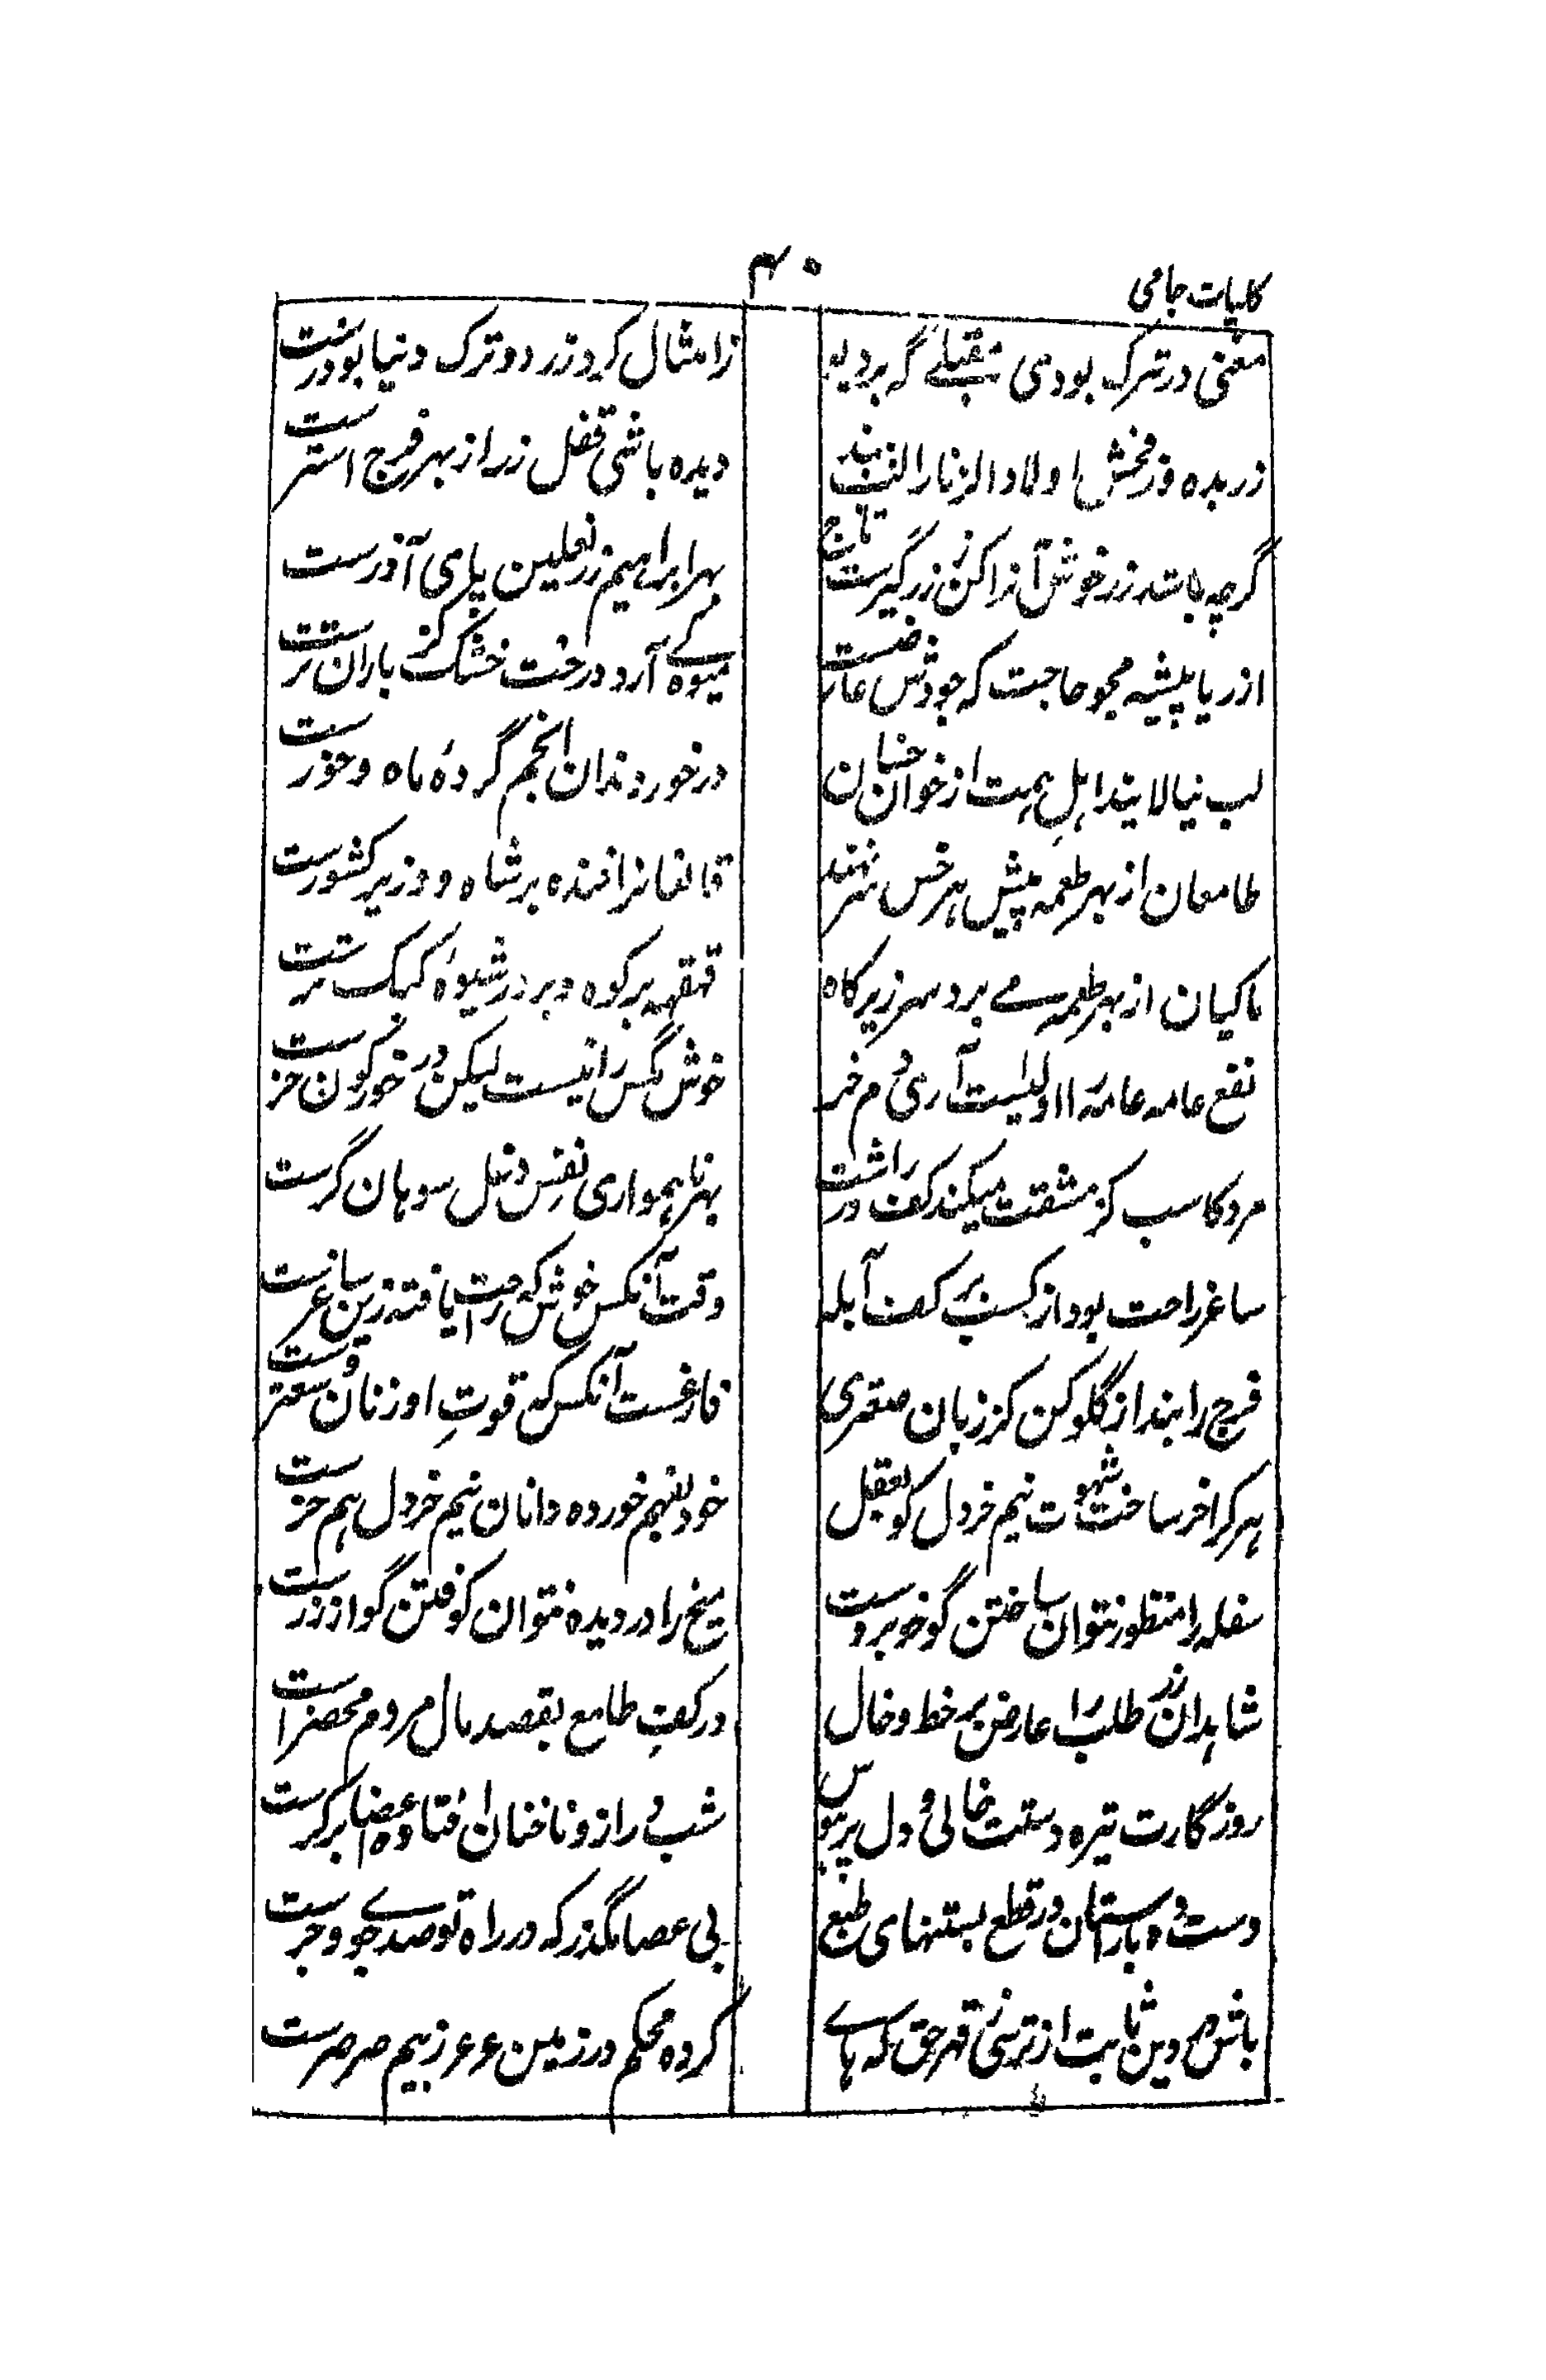 کلیات جامی
۴۰
معنی در ترک بودی مقبلے گه بردیه
زامثال کردزر دو ترک دنیا بودرست
زر بده وز مخش اولاد الزنا را لب ببند
دیده باشی قفل زر از بهر فرج استرست
گرچه باشد زر خوش آنرا کن زر گیرست تاج
بهر ابراهیم زر نعلین پای آذرست
از ریا پیشه مجو حاجت که جودش عارضست
میوه کے آرد درخت خشک کز باران ترست
لب نیالایند اهل همت از خوان خسان
در خور دندان انجم گردۀ ماه و خورست
طامعان از بهر طعمه پیش هر خس سر نهند
قانعانرا خنده بر شاه و وزیر کشورست
ماکیان از بهر طعمه مے برد سر زیر کاه
قهقهه بر کوه و بر در شیوۀ کبک نرست
نفع عامه عامه را اولیست آری دم خر
خوش مگس را نیست لیکن در خور کون خرست
مرد کاسب کز مشقت میکند کف را درشت
بهر ناهمواری نفس دغل سوهان گرست
ساغر راحت بود از کسب بر کف آبله
وقت آنکس خوش که راحت یافته زین ساغرست
فرج را بند از گلو کن کز زبان صقمری
فارغست آنکس که قوت او ز نان و سعترست
هر کرا خر ساخت شهوت نیم خردل کو بعقل
خود بفهم خورده دانان نیم خردل هم خرست
سفله را منظور نتوان ساختن گو خوبروست
میخ را در دیده نتوان کوفتن گو از زرست
شاهدان زر طلب را عارض پر خط و خال
در کف طامع بقصد مال مردم محضر است
روزگارت تیره دستت خالی و دل پر هوس
شب دراز و ناخنان افتاده اعضا پر گرست
دست ده با راستان در قطع بستنهای طبع
بی عصا مگذر که در راه تو صدے جو و جرست
باش در دین ثابت از ترسی قهر حق که هاے
کرده محکم در زمین عرعر ز بیم صرصرست